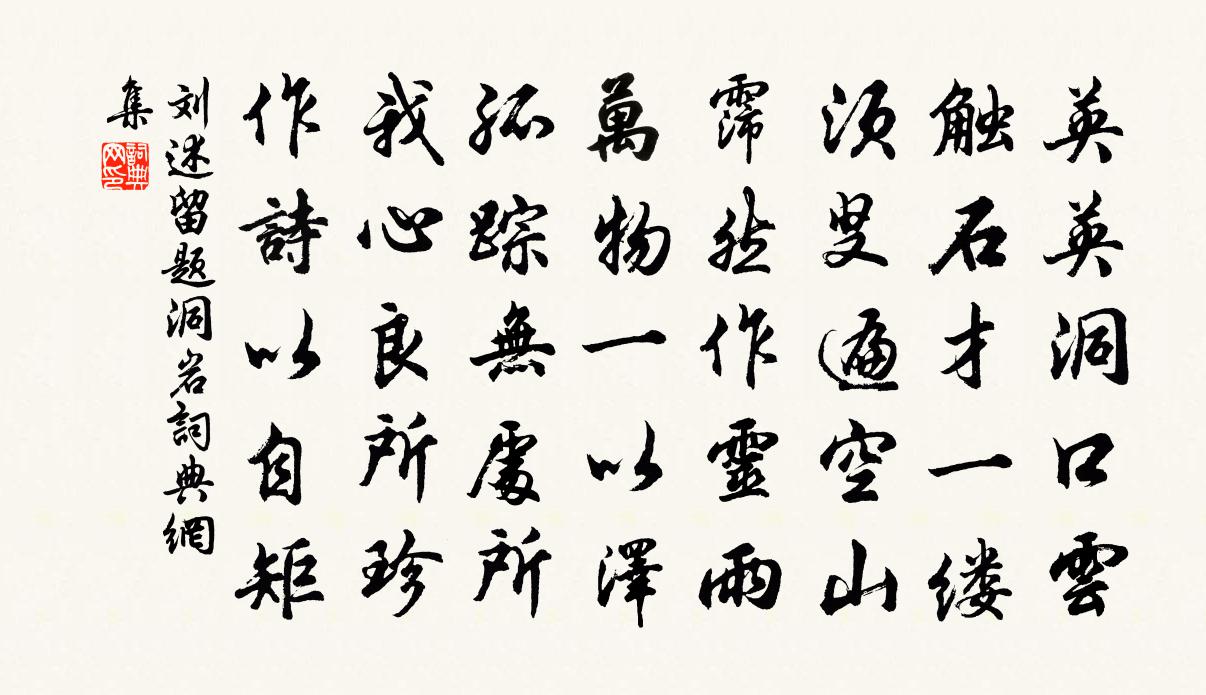 英英洞口雲
触石才一缕
须叟遍空山
霈然作靈雨
萬物一以澤
孤踪無處所
我心良所珍
作詩以自矩
刘述留题洞岩詞典網
集
詞典
网印